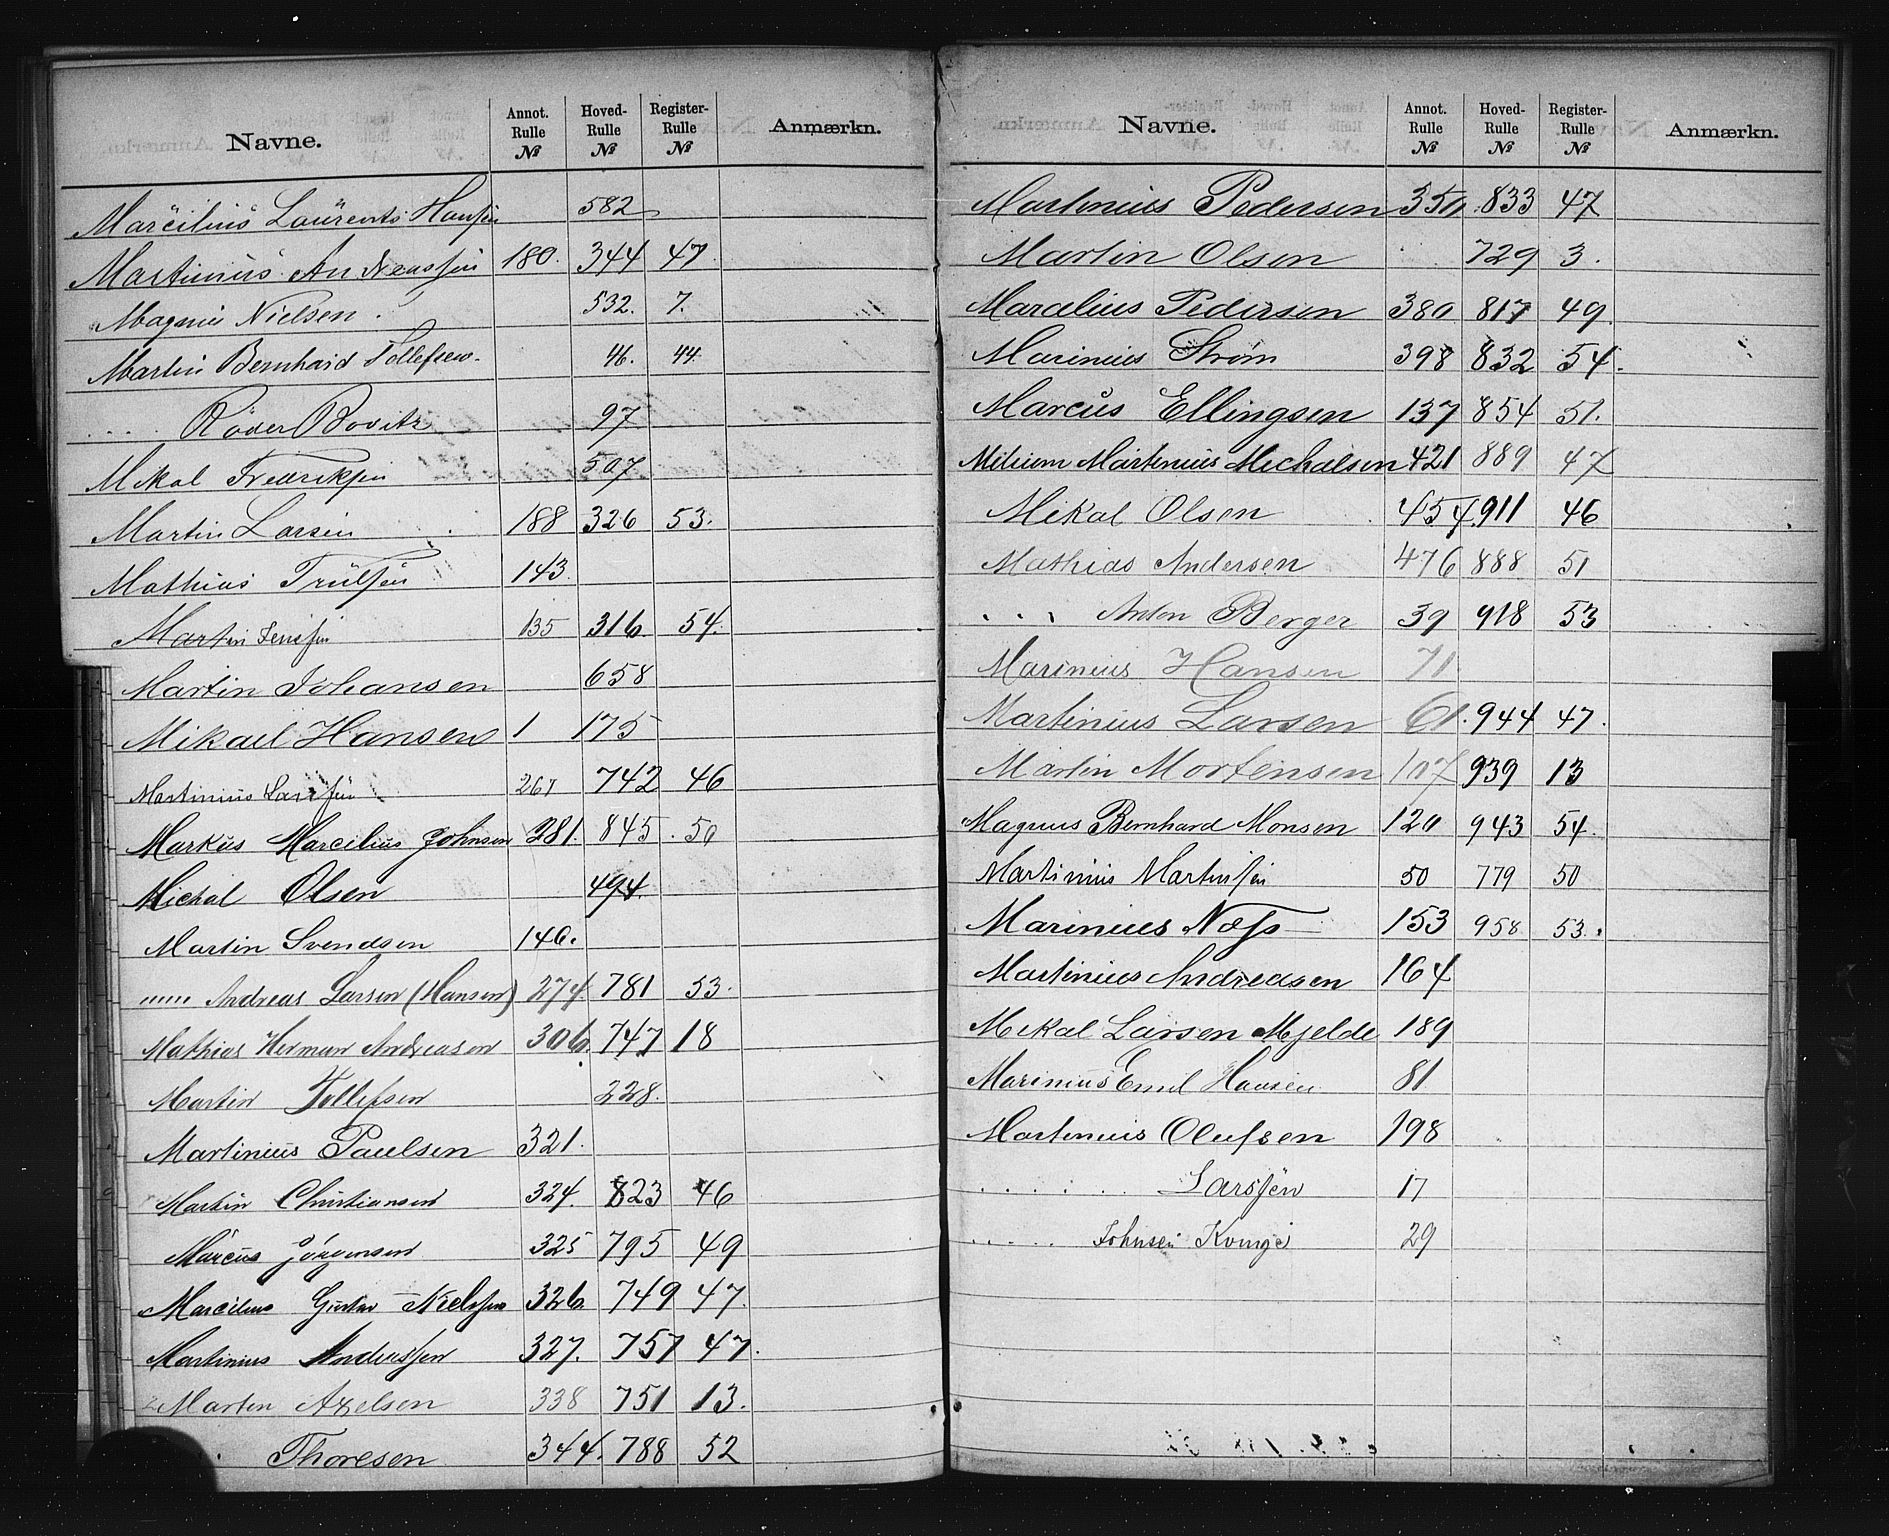 Navne. Annot. Rulle № Hoved-Rulle № Register-Rulle № Anmærkn.
Marcilius Laurents Hansen 582
Martinius Andreassen 180. 344 47.
Magnus Nielsen. 532. 7.
Martin Bernhard Tollefsen. 46. 44.
. . . . Röder Bovitz 97
Mikal Fredriksen 507
Martin Larsen 188 326 53.
Mathias Trulsen 143
Martin Jensen 135 316 54.
Martin Johansen 658
Mikael Hansen 1 175
Martinius Larsen 267 742 46
Markus Marcilius Johnsen 281. 845. 50
Michal Olsen 494.
Martin Svendsen 146.
""" Andreas Larsen (Hansen) 274 781 53.
Mathias Herman Andreasen 306. 747 18
Martin Tollefsen 228.
Martinius Paulsen 321.
Martin Christiansen 324. 823 46
Marcus Jörgensen 325 795 49
Marcilius Gustav Nielsen 326. 749 47.
Martinius Andreassen 327. 757 47.
Marten Axelsen 338 751 13.
Thoresen 344. 788 52
Navne. Annot. Rulle № Hoved-Rulle № Register-Rulle № Anmærkn.
Martinius Pedersen 350. 833 47
Martin Olsen 729 3.
Marcelius Pedersen 380 817 49.
Marinius Strøm 398 832 54.
Marcus Ellingsen 137 854 51.
Martinius Michalsen 421 889 47
Mikal Olsen 454. 911 46
Mathias Andersen 476 888 51
. . . Anton Berger 39 918 53
Marinius Hansen 71
Martinius Larsen 61. 944 47.
Martin Mortensen 107 939 13
Magnus Bernhard Monsen 120 943 54.
Martinius Martinsen 50 779 50
Marinius Næss 153 958 53.
Martinius Andreasen 164
Mekal Larsen Mjelde 189
Marinius Emil Hansen 81
Martinius Olufsen 198
. . . . . . Larssen 17
. . . . . Johnsen Kvinge 29